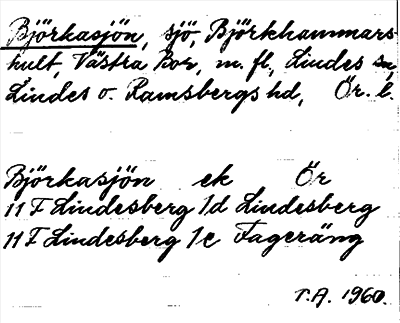 Björkasjön, sjö, Björkhammars-
hult, Västra Bor, m. fl., Lindes sn,
Lindes o. Ramsbergs hd, Ör. l.
Björkasjön ek Ör
11 F Lindesberg 1d Lindesberg
11 F Lindesberg 1e Fageräng
r.A. 1960.